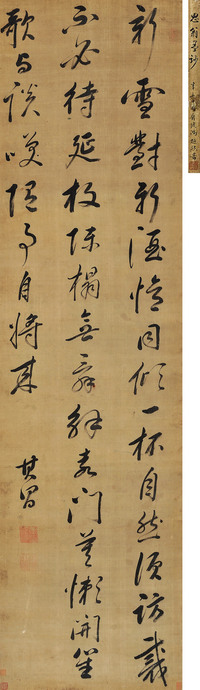 新雪對新酒憶同傾一杯自然須訪戴
不必待延枚陳榻無辭解袁門莫懶開笙
歌与談咲隨事自將來
其昌